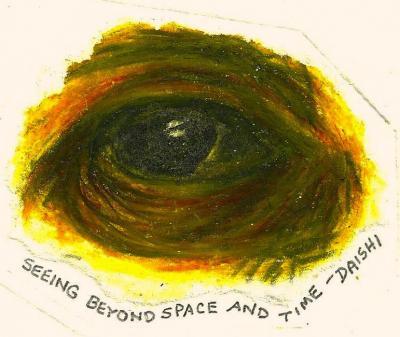 SEEING BEYOND SPACE AND TIME - DAISHI